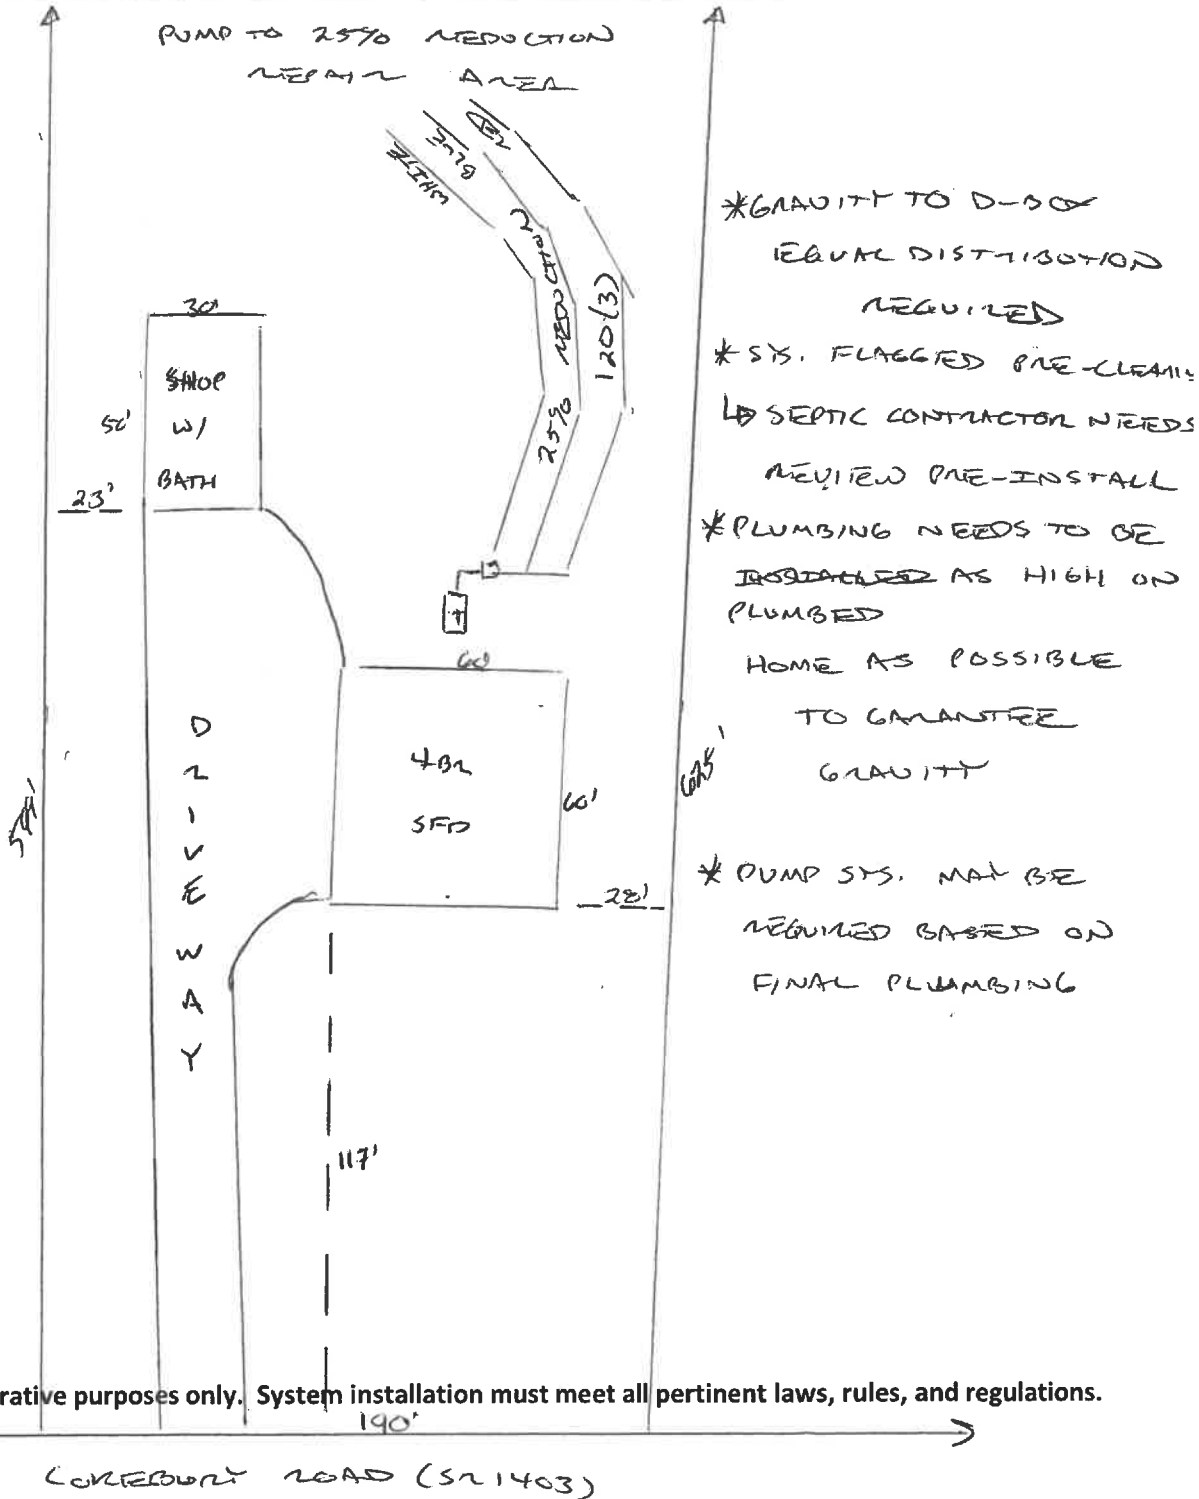 PUMP TO 25% REDUCTION
REPAIR AREA
RED
BLUE
WHITE
25% REDUCTION
120'(3)
30'
SHOP
W/
BATH
50'
23'
T
60'
4BR
SFD
60'
28'
625'
DRIVEWAY
117'
*GRAVITY TO D-BOX
EQUAL DISTRIBUTION
REQUIRED
*SYS. FLAGGED PRE-CLEARIN
SEPTIC CONTRACTOR NEEDS
REVIEW PRE-INSTALL
*PLUMBING NEEDS TO BE
INSTALLED AS HIGH ON
PLUMBED
HOME AS POSSIBLE
TO GARANTEE
GRAVITY
*PUMP SYS. MAY BE
REQUIRED BASED ON
FINAL PLUMBING
rative purposes only. System installation must meet all pertinent laws, rules, and regulations.
190'
ROAD (SR1403)